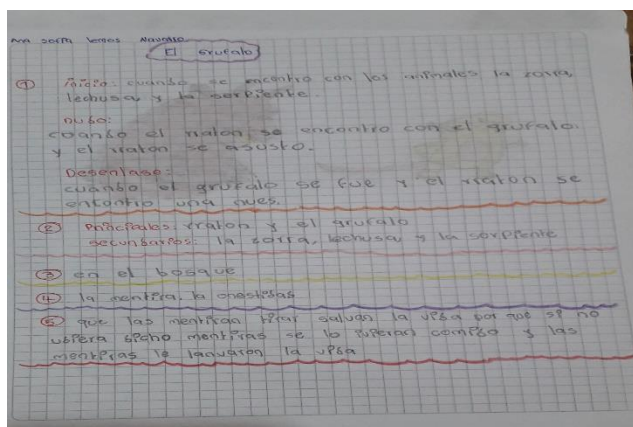 Ana sofia lemos Navarro
El grufalo
① inicio: cuando se encontro con los animales la zorra,
lechusa y la serpiente.
nudo:
cuando el raton se encontro con el grufalo.
y el rraton se asusto.
Desenlase:
cuando el grufalo se fue y el rraton se
encontro una nues.
② principales: rraton y el grufalo
secundarios: la zorra, lechusa y la serpiente
③ en el bosque
④ la mentira. la onestidad
⑤ que las mentiras salvan la vida por que si no
ubiera dicho mentiras se lo ubieran comido y las
mentiras le la vida